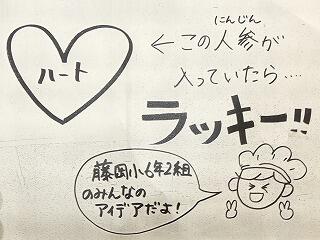 ハート
にんじん
←この人参が
入っていたら....
ラッキー!!
藤岡小6年2組
のみんなの
アイデアだよ!